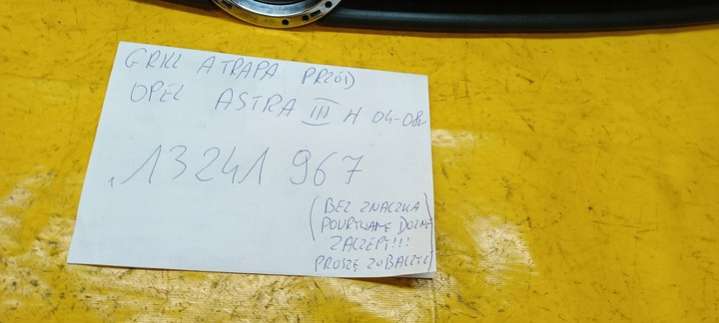 GRILL ATRAPA PRZÓD
OPEL ASTRA III H 04-08r
13241 967
(BEZ ZNACZKA)
POURYWANE DOLNE
ZACZEPY!!!
PROSZĘ ZOBACZYĆ